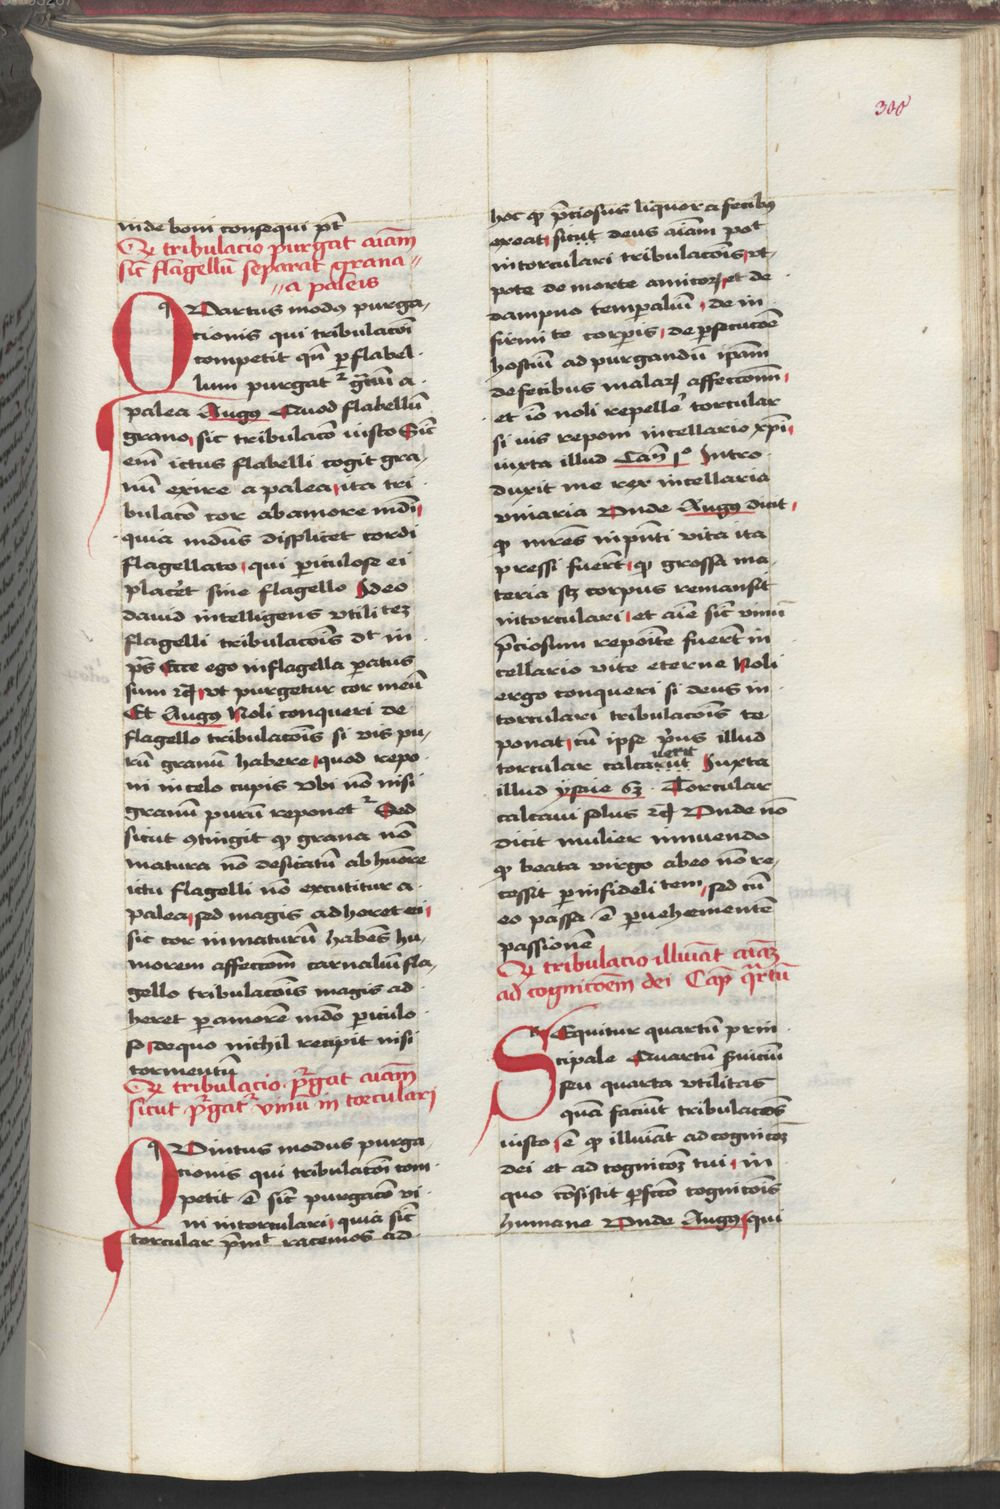 300
inde boni consequi pt̄
Qr̄ tribulacio purgat aīam
sic flagellū separat grana
a paleis
Quartus modus purga-
cionis qui tribulacōi
competit qn̄ per flabel-
lum purgatr g̃nū a
palea Augus Quod flabellū
grano sic tribulacō iusto Sic
em̄ ictus flabelli cogit gra-
nū exire a palea ita tri
bulacō cor ab amore mdi
quia mdus displicet cordi
flagellato qui periculose ei
placet sine flagello Ideo
dauid intelligens vtilitez
flagelli tribulacōis dt in
ps̄ Ecce ego in flagella paratus
sum rc̄ vt purgetur cor meū
Et Augus Noli conqueri de
flagello tribulacōis si vis pu-
rū granū habere quod repo
ni in celo cupis vbi nō nisi
granū purū reponetr Sed
sicut ꝯtingit qꝫ grana nō
matura nō desicatū ab huōre
ictu flagelli nō excutitur a
palea sed magis adheret ei
sic cor inmaturū habēs hu-
morem affeccom̄ carnaliū fla-
gello tribulacōis magis ad
heret per amorē mdo periculo
so de quo nichil recipit nisi
tormentū
Qr̄ tribulacio prgat aīam
sicut prgatr vinū in torculari
Quintus modus purga
cionis qui tribulacōi com
petit ē sic purgacō vi
ni in torculari quia sic
torcular pm̄t racemos ad
hoc qꝫ p̄ciosus liquor a fecibus
exeat sicut deus aīam pot
in torculari tribulacōis vt
pote de morte amicoꝝ et de
dampno temporaliū de in
firmitate corporis de persecucōe
hostiū ad purgandū ip̄am
de fecibus malaꝝ affeccom̄
et iō noli repelle torcular
si vis reponi in cellario xpi
iuxta illud Can̄ 1o Intro
duxit me rex in cellaria
vinaria Vnde Augus dicit
qꝫ mr̄es in pn̄ti vita ita
pressi fuerūt qꝫ grossa ma-
teria scꝫ corpus remansit
in torculari et aīe sic vinū
p̄ciosum repoīte fuerūt in
cellario vite eterne Noli
ergo conqueri si deus in
torculari tribulacōis te
ponat cū ipse pus illud
torcular calcarūt uerit Iuxta
illud ysaie 63 Torcular
calcaui solus rc̄ Vnde nō
dicit mulier innuendo
qꝫ beata virgo ab eo nō re-
cessit per infidelitatem sed cū
eo passa ē per vehementē
passionē
Qr̄ tribulacio illuīat aīaꝫ
ad cognicōem dei Cap̄ qrtū
Sequitur quartū prin
cipale Quartū Suiciū
seu quarta vtilitas
quā faciūt tribulacōes
iusto ē qꝫ illuīat ad cognicōꝫ
dei et ad cognicōꝫ tui in
quo cōsistit perfcō cognicōis
humane Vnde Augus qui